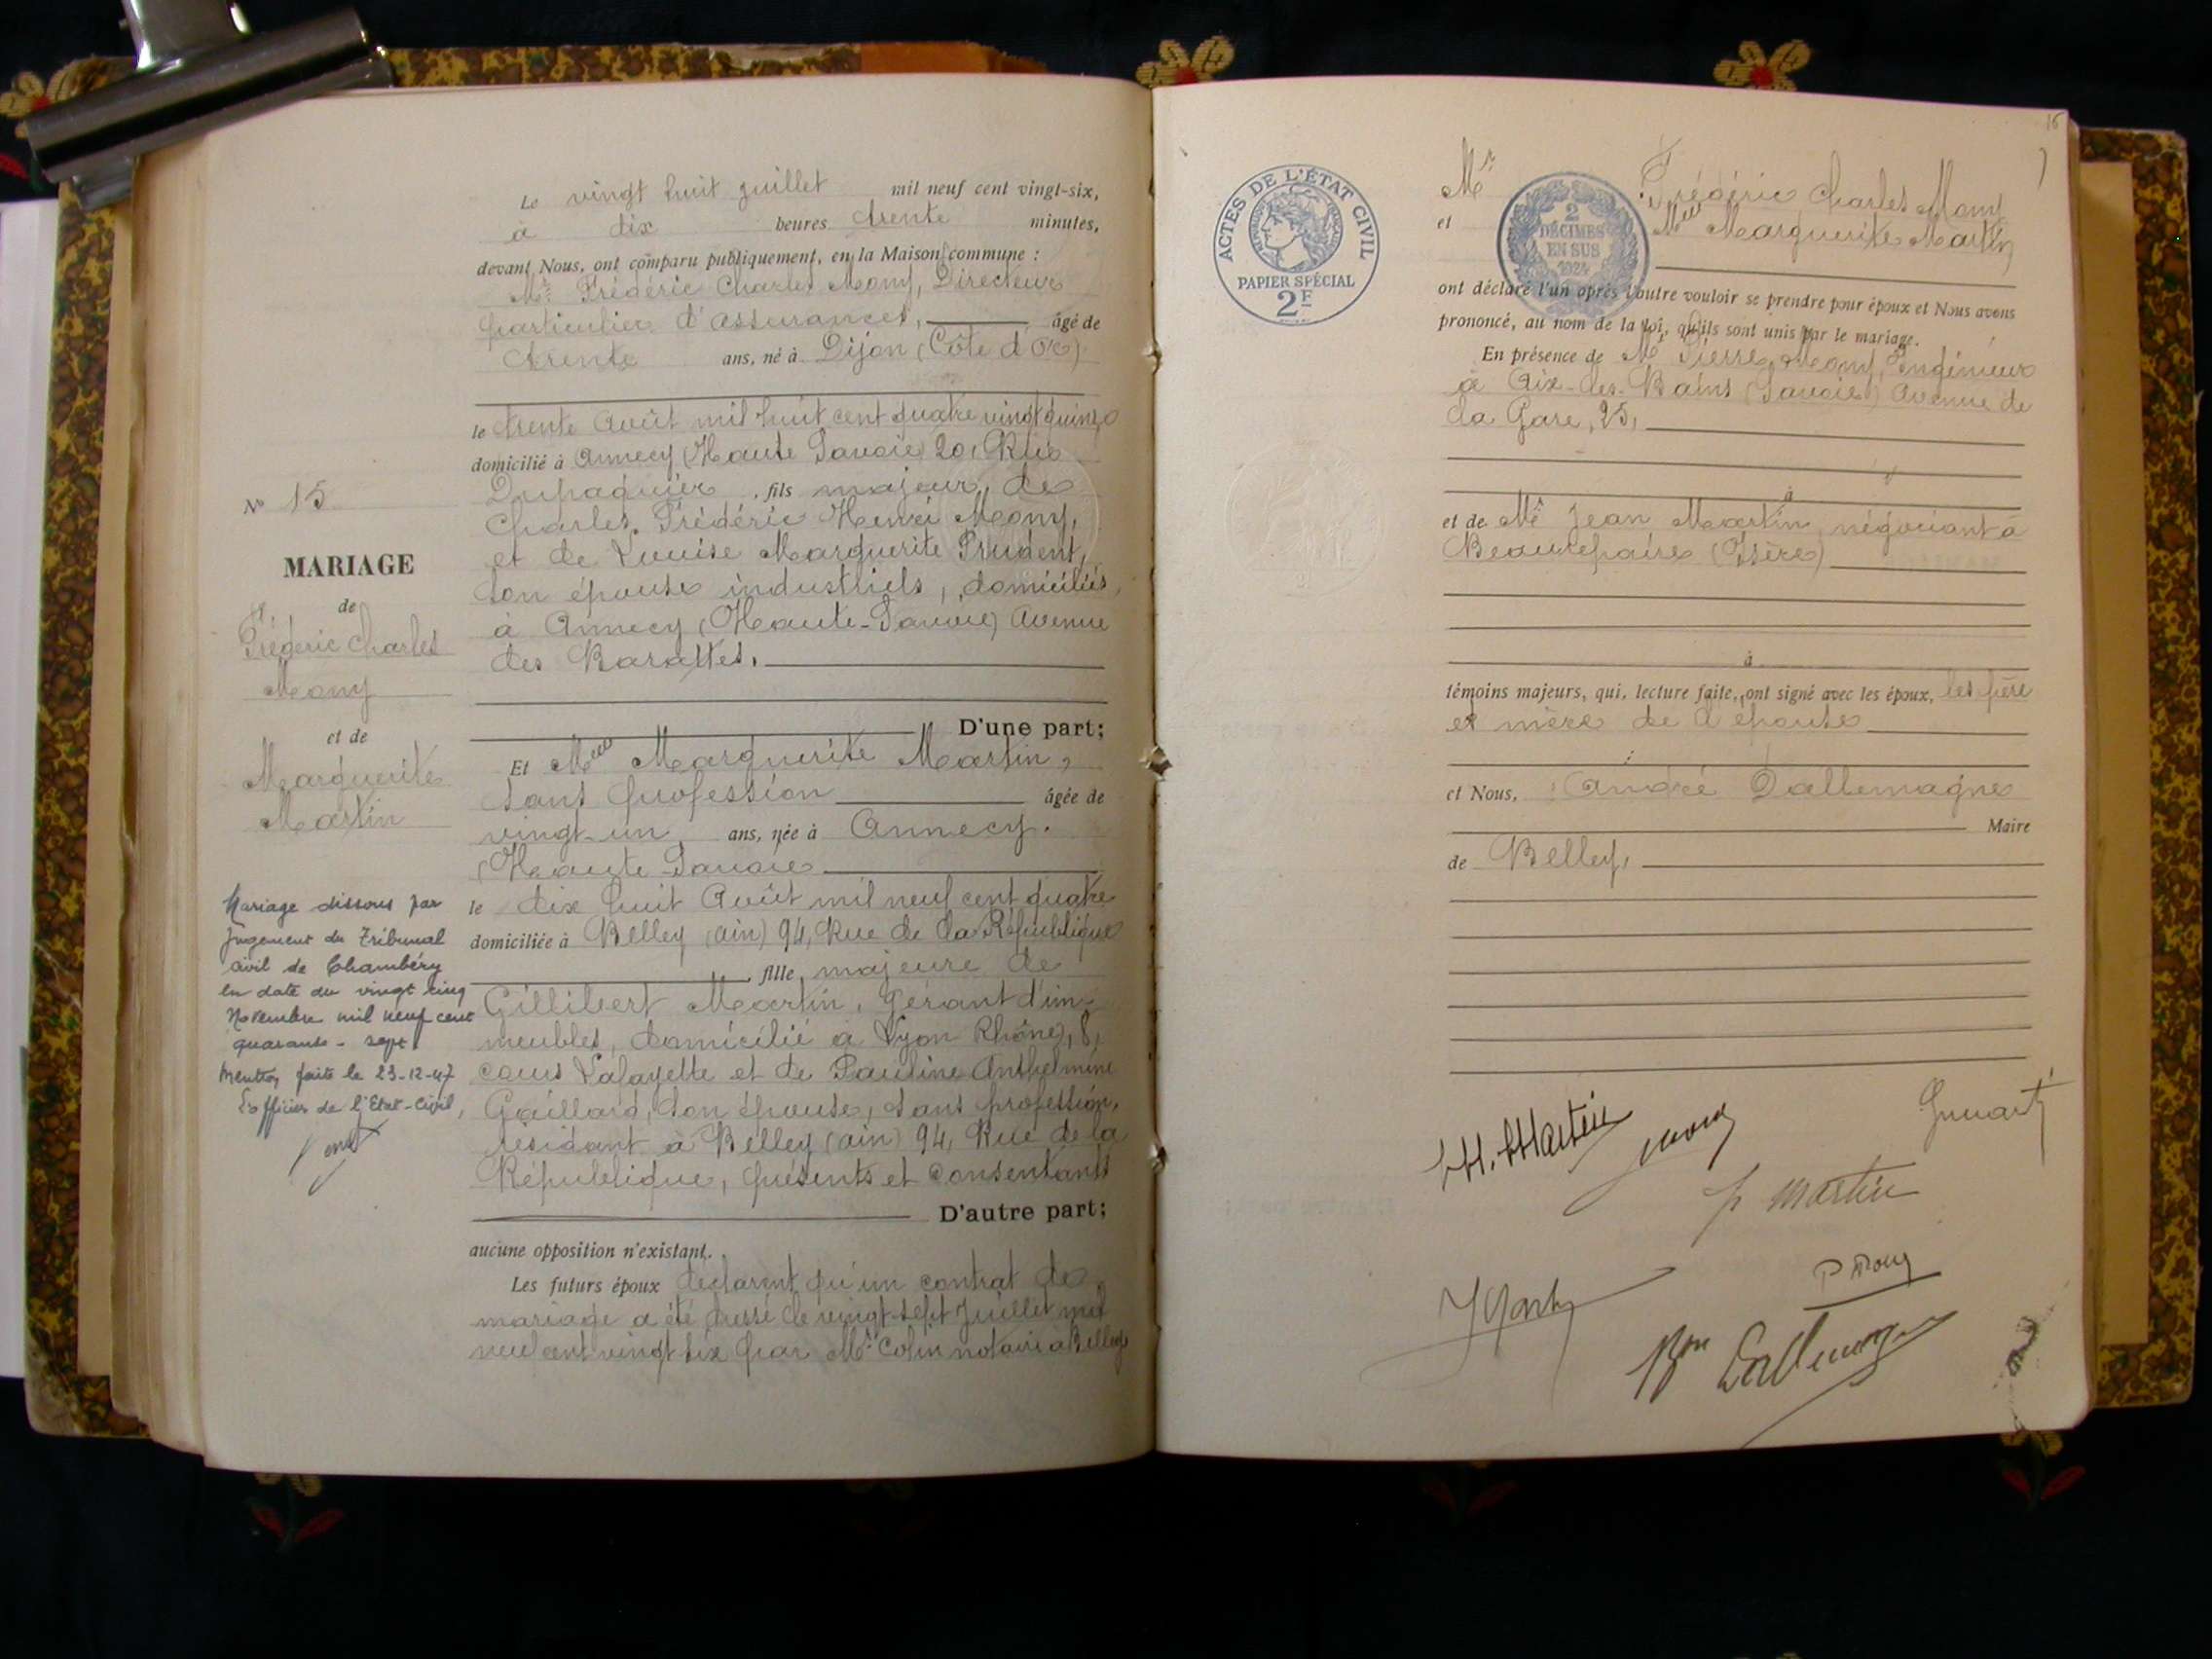 Le vingt huit juillet mil neuf cent vingt-six,
à dix heures trente minutes,
devant Nous, ont comparu publiquement, en la Maison commune :
Mr Frédéric Charles Mony, Directeur
particulier d'assurances, âgé de
trente ans, né à Dijon (Côte d'Or)
le trente Août mil huit cent quatre vingt quinze
domicilié à Annecy (Haute Savoie) 20, Rue
Dupaquier, fils majeur de
Charles Frédéric Henri Mony,
et de Louise Marguerite Prudent,
son épouse industriels, domiciliés
à Annecy (Haute-Savoie) Avenue
des Barattes.
D'une part;
Et Melle Marguerite Martin,
sans profession âgée de
vingt-un ans, née à Annecy.
(Haute Savoie
le dix huit Août mil neuf cent quatre
domiciliée à Belley (ain) 94, Rue de la République
fille majeure de
Gillibert Martin, gérant d'im-
meubles, domicilié à Lyon Rhône), 8,
cours Lafayette et de Pauline Anthelmine
Gaillard, son épouse, sans profession,
résidant à Belley (ain) 94, Rue de la
République, présents et consentants
D'autre part;
aucune opposition n'existant.
Les futurs époux déclarent qu'un contrat de
mariage a été dressé le vingt-sept Juillet mil
neuf cent vingt six par Me Colin notaire à Belley
No 15
MARIAGE
de
Frédéric Charles
Mony
et de
Marguerite
Martin
Mariage dissous par
Jugement du Tribunal
civil de Chambéry
en date du vingt cinq
Novembre mil neuf cent
quarante-sept
Mention faite le 23-12-47
L'officier de l'Etat-Civil,
16
ACTES DE L'ÉTAT CIVIL
PAPIER SPÉCIAL
2F
2
DÉCIMES
EN SUS
1924
Mr Frédéric Charles Mony
et Melle Marguerite Martin
ont déclaré l'un après l'autre vouloir se prendre pour époux et Nous avons
prononcé, au nom de la loi, qu'ils sont unis par le mariage.
En présence de Mr Pierre Mony, Ingénieur
à Aix-les-Bains (Savoie) Avenue de
la Gare, 25,
à
et de Mr Jean Martin négociant à
Beaurepaire (Isère)
à
témoins majeurs, qui, lecture faite, ont signé avec les époux, les père
et mère de l'épouse
et Nous, André Dallemagne
Maire
de Belley,
M. Martin
Mony
p Martin
P Mony